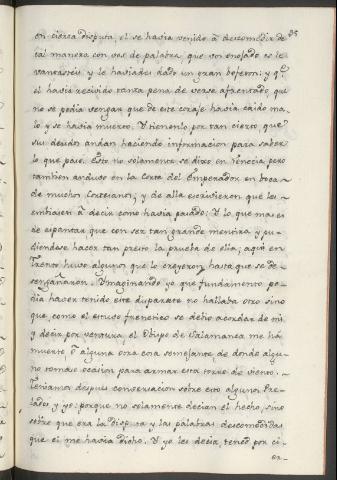 35
en cierta disputa, el se havia venido â descomedir de
tal manera con vos de palabra, que vos enojado os le
vanasteis, y le haviades dado un gran bofeton: y q.e
el havia recivido tanta pena de verse afrentado, que
no se podia vengar que de este coraje havia caido ma
lo y se havia muerto. Y tienenlo por tan cierto, que
sus deudos andan haciendo informacion para saber
lo que pasó. Esto no solamente se dixo en Venecia, pero
tambien anduvo en la Corte del Emperador en boca
de muchos Cortesanos; y de alla escrivieron que les
embiasen â decir como havia pasado: Y lo que mas es
de espantar que con ser tan grande mentira y pu
diendose hacer tan presto la prueba de ella; aqui en
Trento huvo algunos que lo creyeron hasta que se de
sengañaron. Ymaginando yo que fundamento po
dia haver tenido este disparate no hallaba otro sino
que, como el estuvo frenetico se debio acordar de mi
y decir por ventura, el Obispo de Salamanca me há
muerto, ó alguna otra cosa semejante, de donde algu
no tomase ocasion para armar esta torre de viento.
Teniamos despues conversacion sobre esto algunos Pre
lados y yo: porque no solamente decian el hecho, sino
sobre que era la disputa y las palabras descomedidas
que el me havia dicho. Y yo les decia, tened por ci-
er-